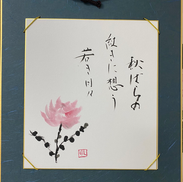 秋ばらの
紅きに想う
若き日々